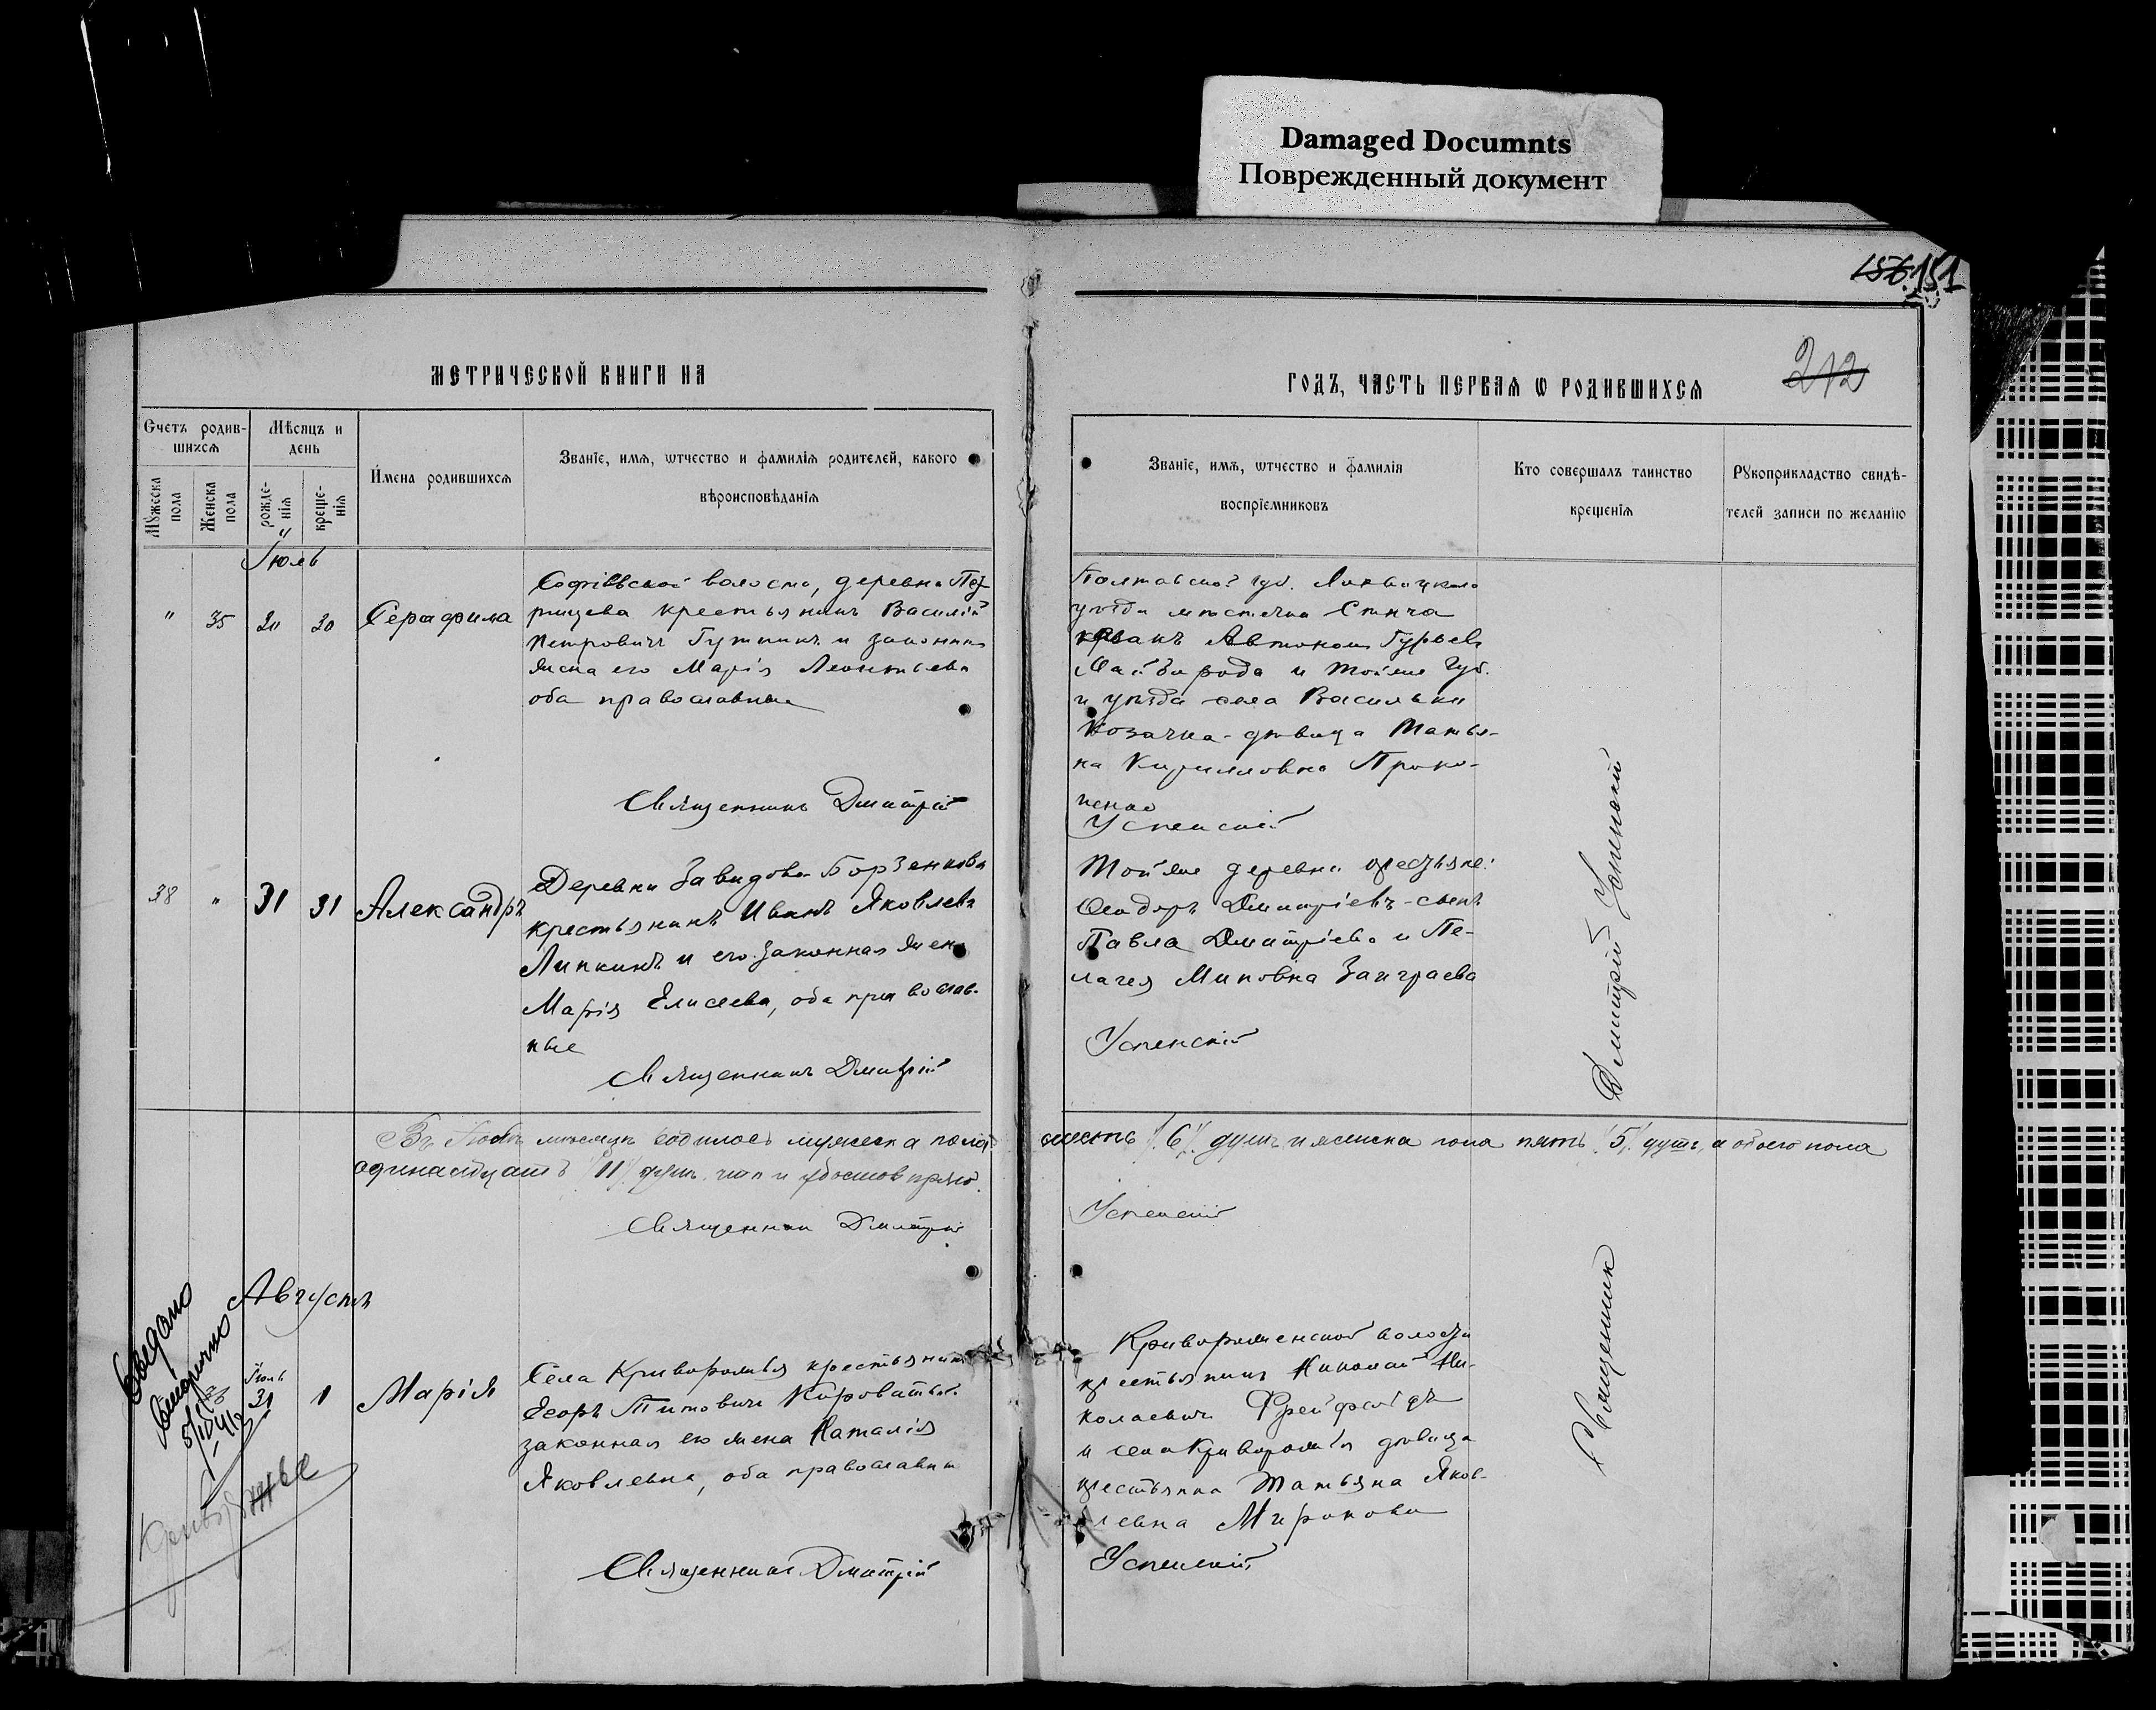 Damaged Documnts
Поврежденный документ
156 151
212
МЕТРИЧЕСКОЙ КНИГИ НА
ГОДЪ, ЧАСТЬ ПЕРВАЯ Ѡ РОДИВШИХСЯ
Счетъ родив-
шихся
Мѣсяцъ и
день
Мужеска
пола
Женска
пола
рожде-
нія
креще-
нія
Имена родившихся
Званіе, имя, ѡтчество и фамилія родителей, какого
вѣроисповѣданія
Званіе, имя, ѡтчество и фамилія
воспріемниковъ
Кто совершалъ таинство
крещенія
Рукоприкладство свидѣ-
телей записи по желанію
Іюль
" 35 20 20 Серафима
волости, деревни
крестьянинъ Василій
Петровичъ и законная
жена его Марія Леонтьева
оба православные
Священникъ Дмитрій
Полтавской губ.
уѣзда мѣстечка
Автоном Гурьевъ
и тойже губ.
и уѣзда села Васильки
Козачка-дѣвица Татья-
на Кирилловна Проко-
пенко
Успенскій
38 " 31 31 Александръ
Деревни Завидово-Борзенкова
крестьянинъ Иванъ Яковлевъ
Липкинъ и его законная жена
Марія Елисеева, оба православ-
ные
Священникъ Дмитрій
Тойже деревни крестьяне:
Ѳеодоръ Дмитріевъ-сынъ
Павла Дмитріева и Пе-
лагея Заиграева
Успенскій
Дмитрій Успенскій
Въ Іюлѣ мѣсяцѣ родилось мужеска пола шесть /6/ душъ и женска пола пять /5/ душъ, а обоего пола
одинадцать /11/ душъ,
Священник Дмитрій
Успенскій
Августъ
Выдано
Криворожье
Іюль
31 1 Марія
Села Криворожья крестьянинъ
Титовичъ
законная его жена Наталія
Яковлевна, оба православные
Священникъ Дмитрій
Кривороженской волости
крестьянинъ Николай Ни-
колаевичъ
и села Криворожья дѣвица
крестьянка Татьяна Яков-
левна Миронова
Успенскій
Священник